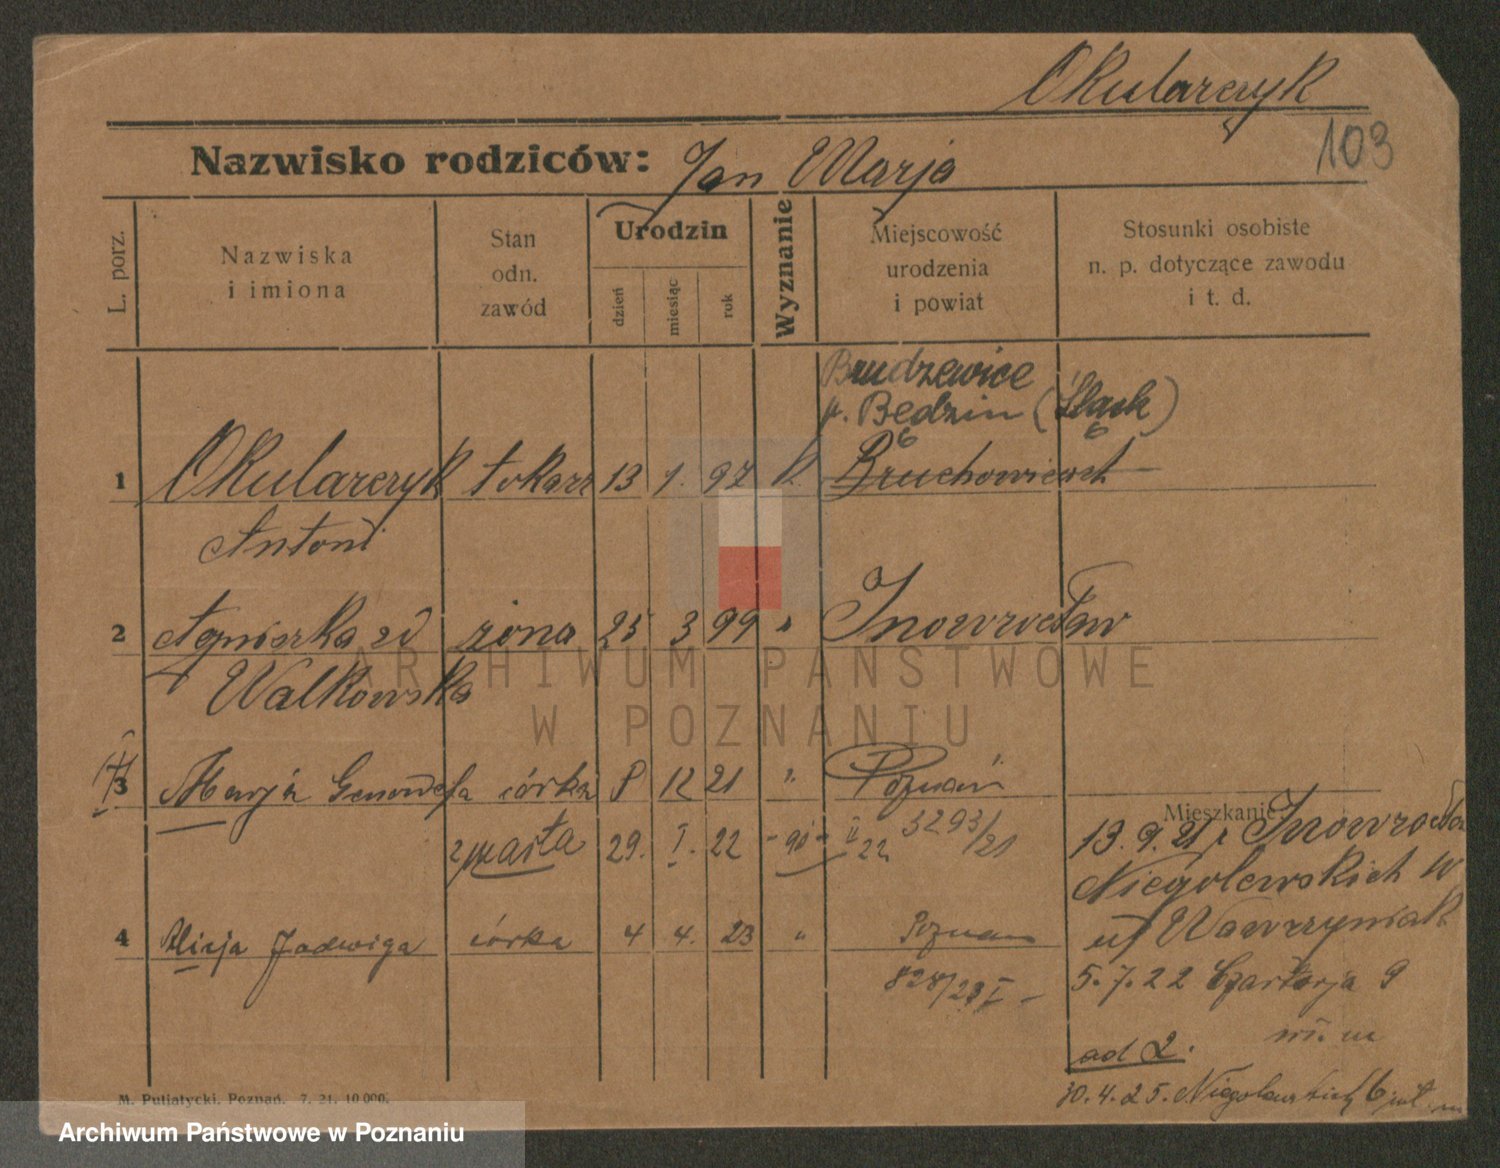 Okularczyk
103
Nazwisko rodziców: Jan Marja
L. porz.
Nazwiska
i imiona
Stan
odn.
zawód
Urodzin
dzień
miesiąc
rok
Wyznanie
Miejscowość
urodzenia
i powiat
Stosunki osobiste
n. p. dotyczące zawodu
i t. d.
Brudzewice
p. Będzin (Śląsk)
1 Okularczyk tokarz 13 1. 97 k. Bruchowiewet
Antoni
2 Agnieszka zd żona 25 3 99 " Inowrocław
Walkowska
3 Marja Genowefa córka 8 12 21 " Poznań
3293/21
Mieszkanie:
zmarła 29. I. 22 - 90 - II 22
13. 9. 21 z Inowrocław
Niegolewskich
u/ Wawrzyniak
4 Alicja Jadwiga córka 4 4. 23 " Poznań
828/23 I -
5. 7. 22 Czartorja 9
ad 2.
30. 4. 25. Niegolewskich 6
M. Putiatycki, Poznań. 7. 21. 10 000.
ARCHIWUM PAŃSTWOWE
W POZNANIU
Archiwum Państwowe w Poznaniu